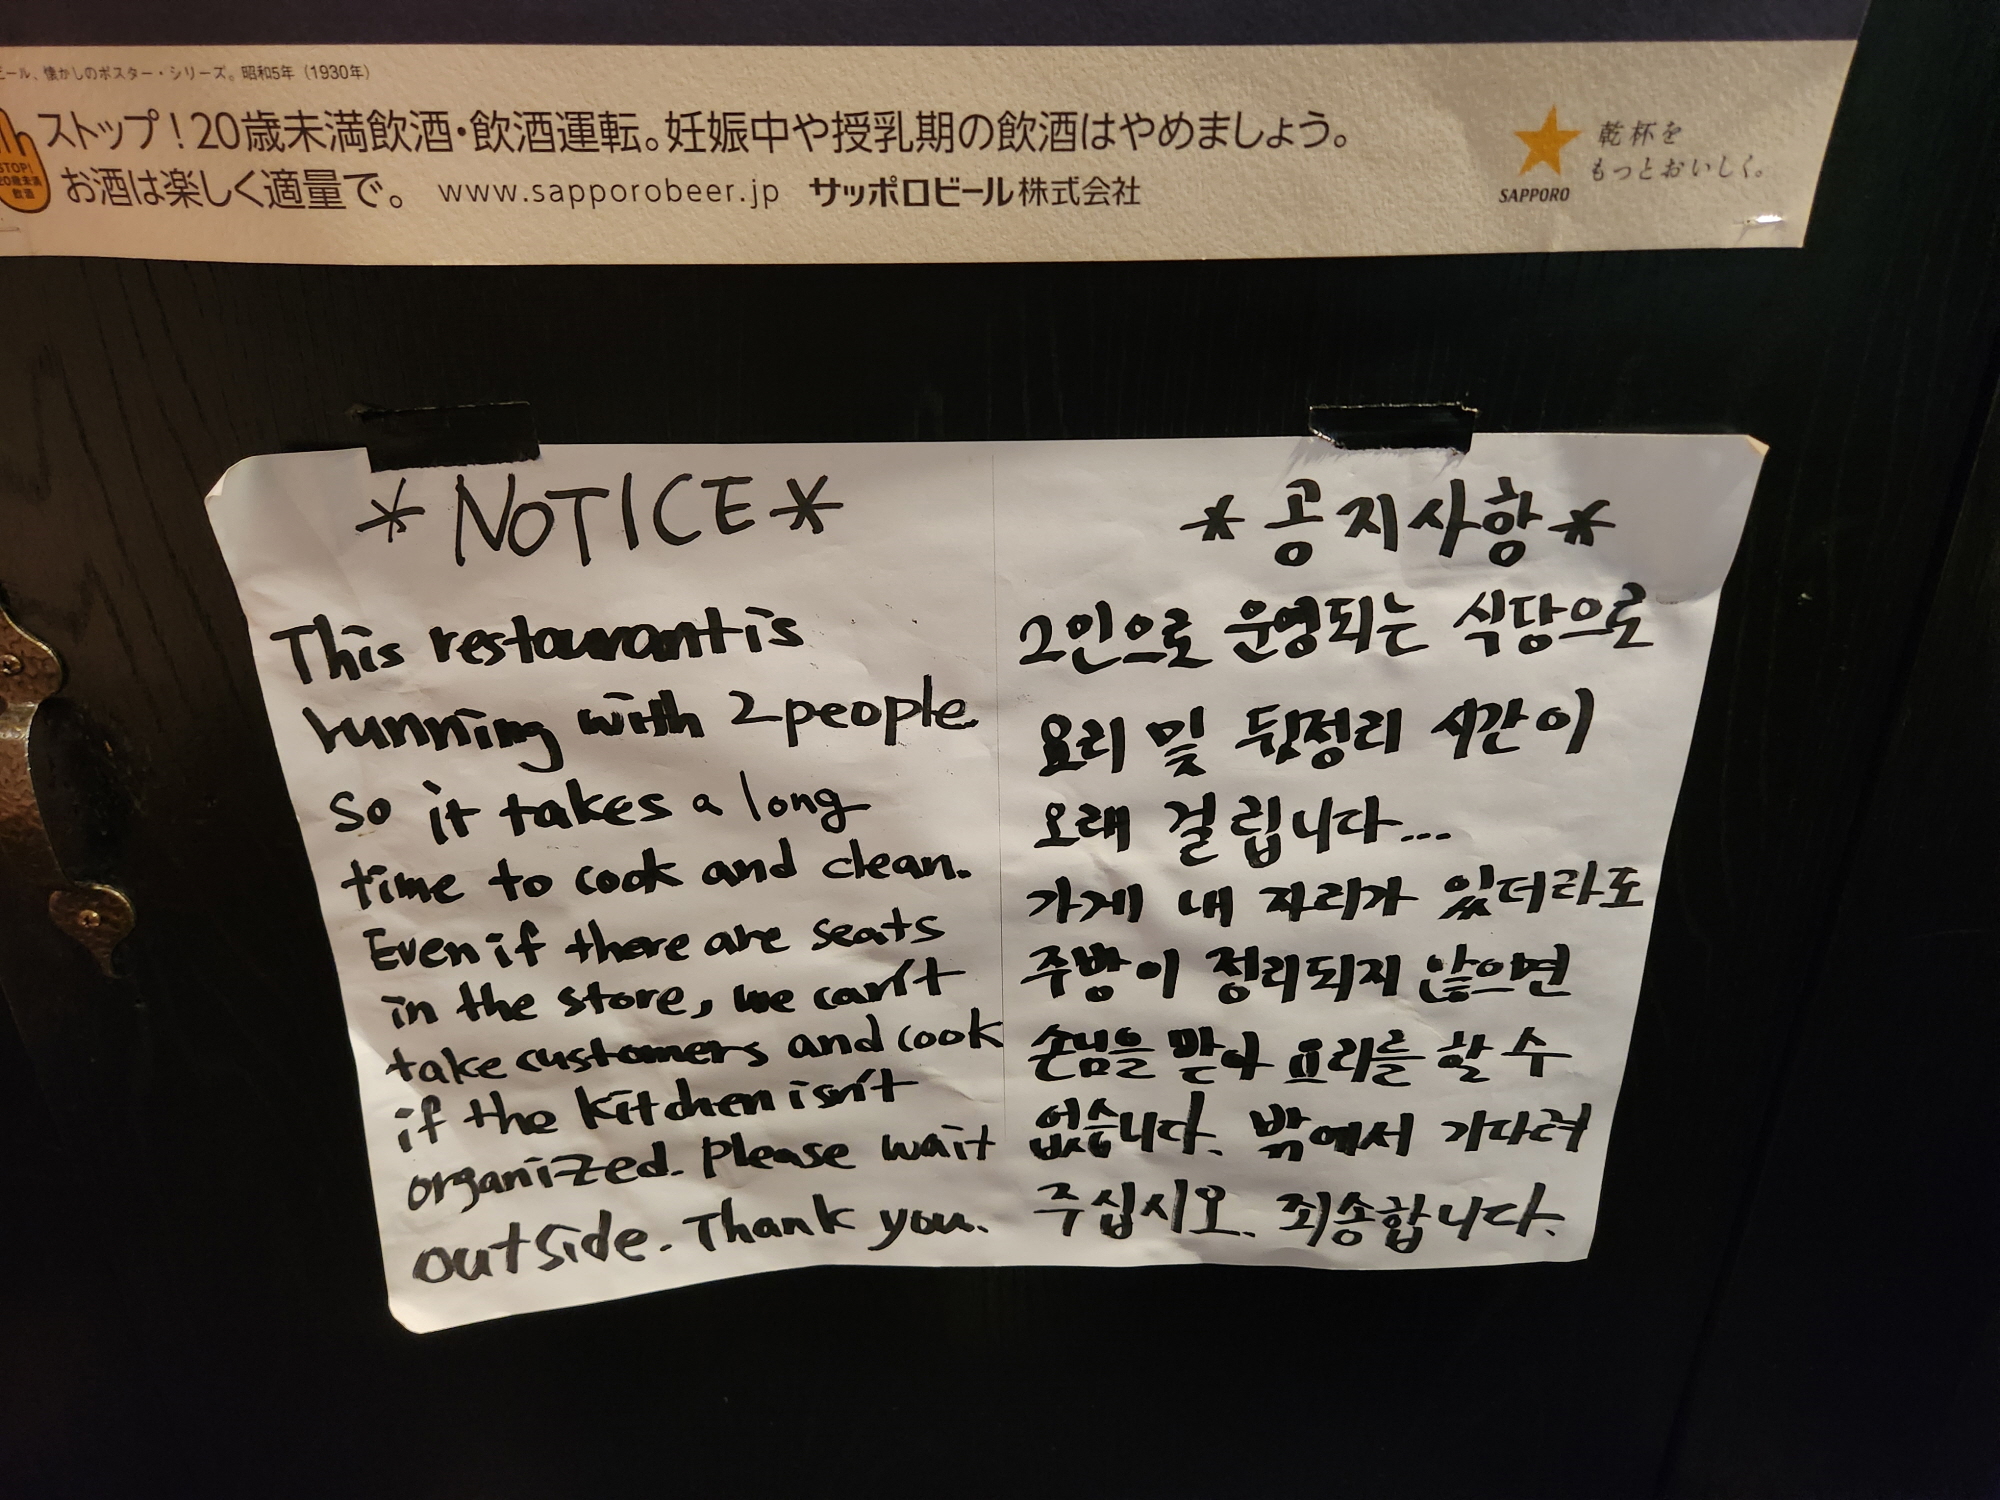 ビール、懐かしのポスター・シリーズ。昭和5年（1930年）
ストップ！20歳未満飲酒・飲酒運転。妊娠中や授乳期の飲酒はやめましょう。
お酒は楽しく適量で。 www.sapporobeer.jp サッポロビール株式会社
STOP!
20歳未満
飲酒
SAPPORO
乾杯を
もっとおいしく。
*NOTICE*
This restaurant is
running with 2 people
so it takes a long
time to cook and clean.
Even if there are seats
in the store, we can't
take customers and cook
if the kitchen isn't
organized. Please wait
outside. Thank you.
*공지사항*
2인으로 운영되는 식당으로
요리 및 뒷정리 시간이
오래 걸립니다...
가게 내 자리가 있더라도
주방이 정리되지 않으면
손님을 맡아 요리를 할 수
없습니다. 밖에서 기다려
주십시오. 죄송합니다.